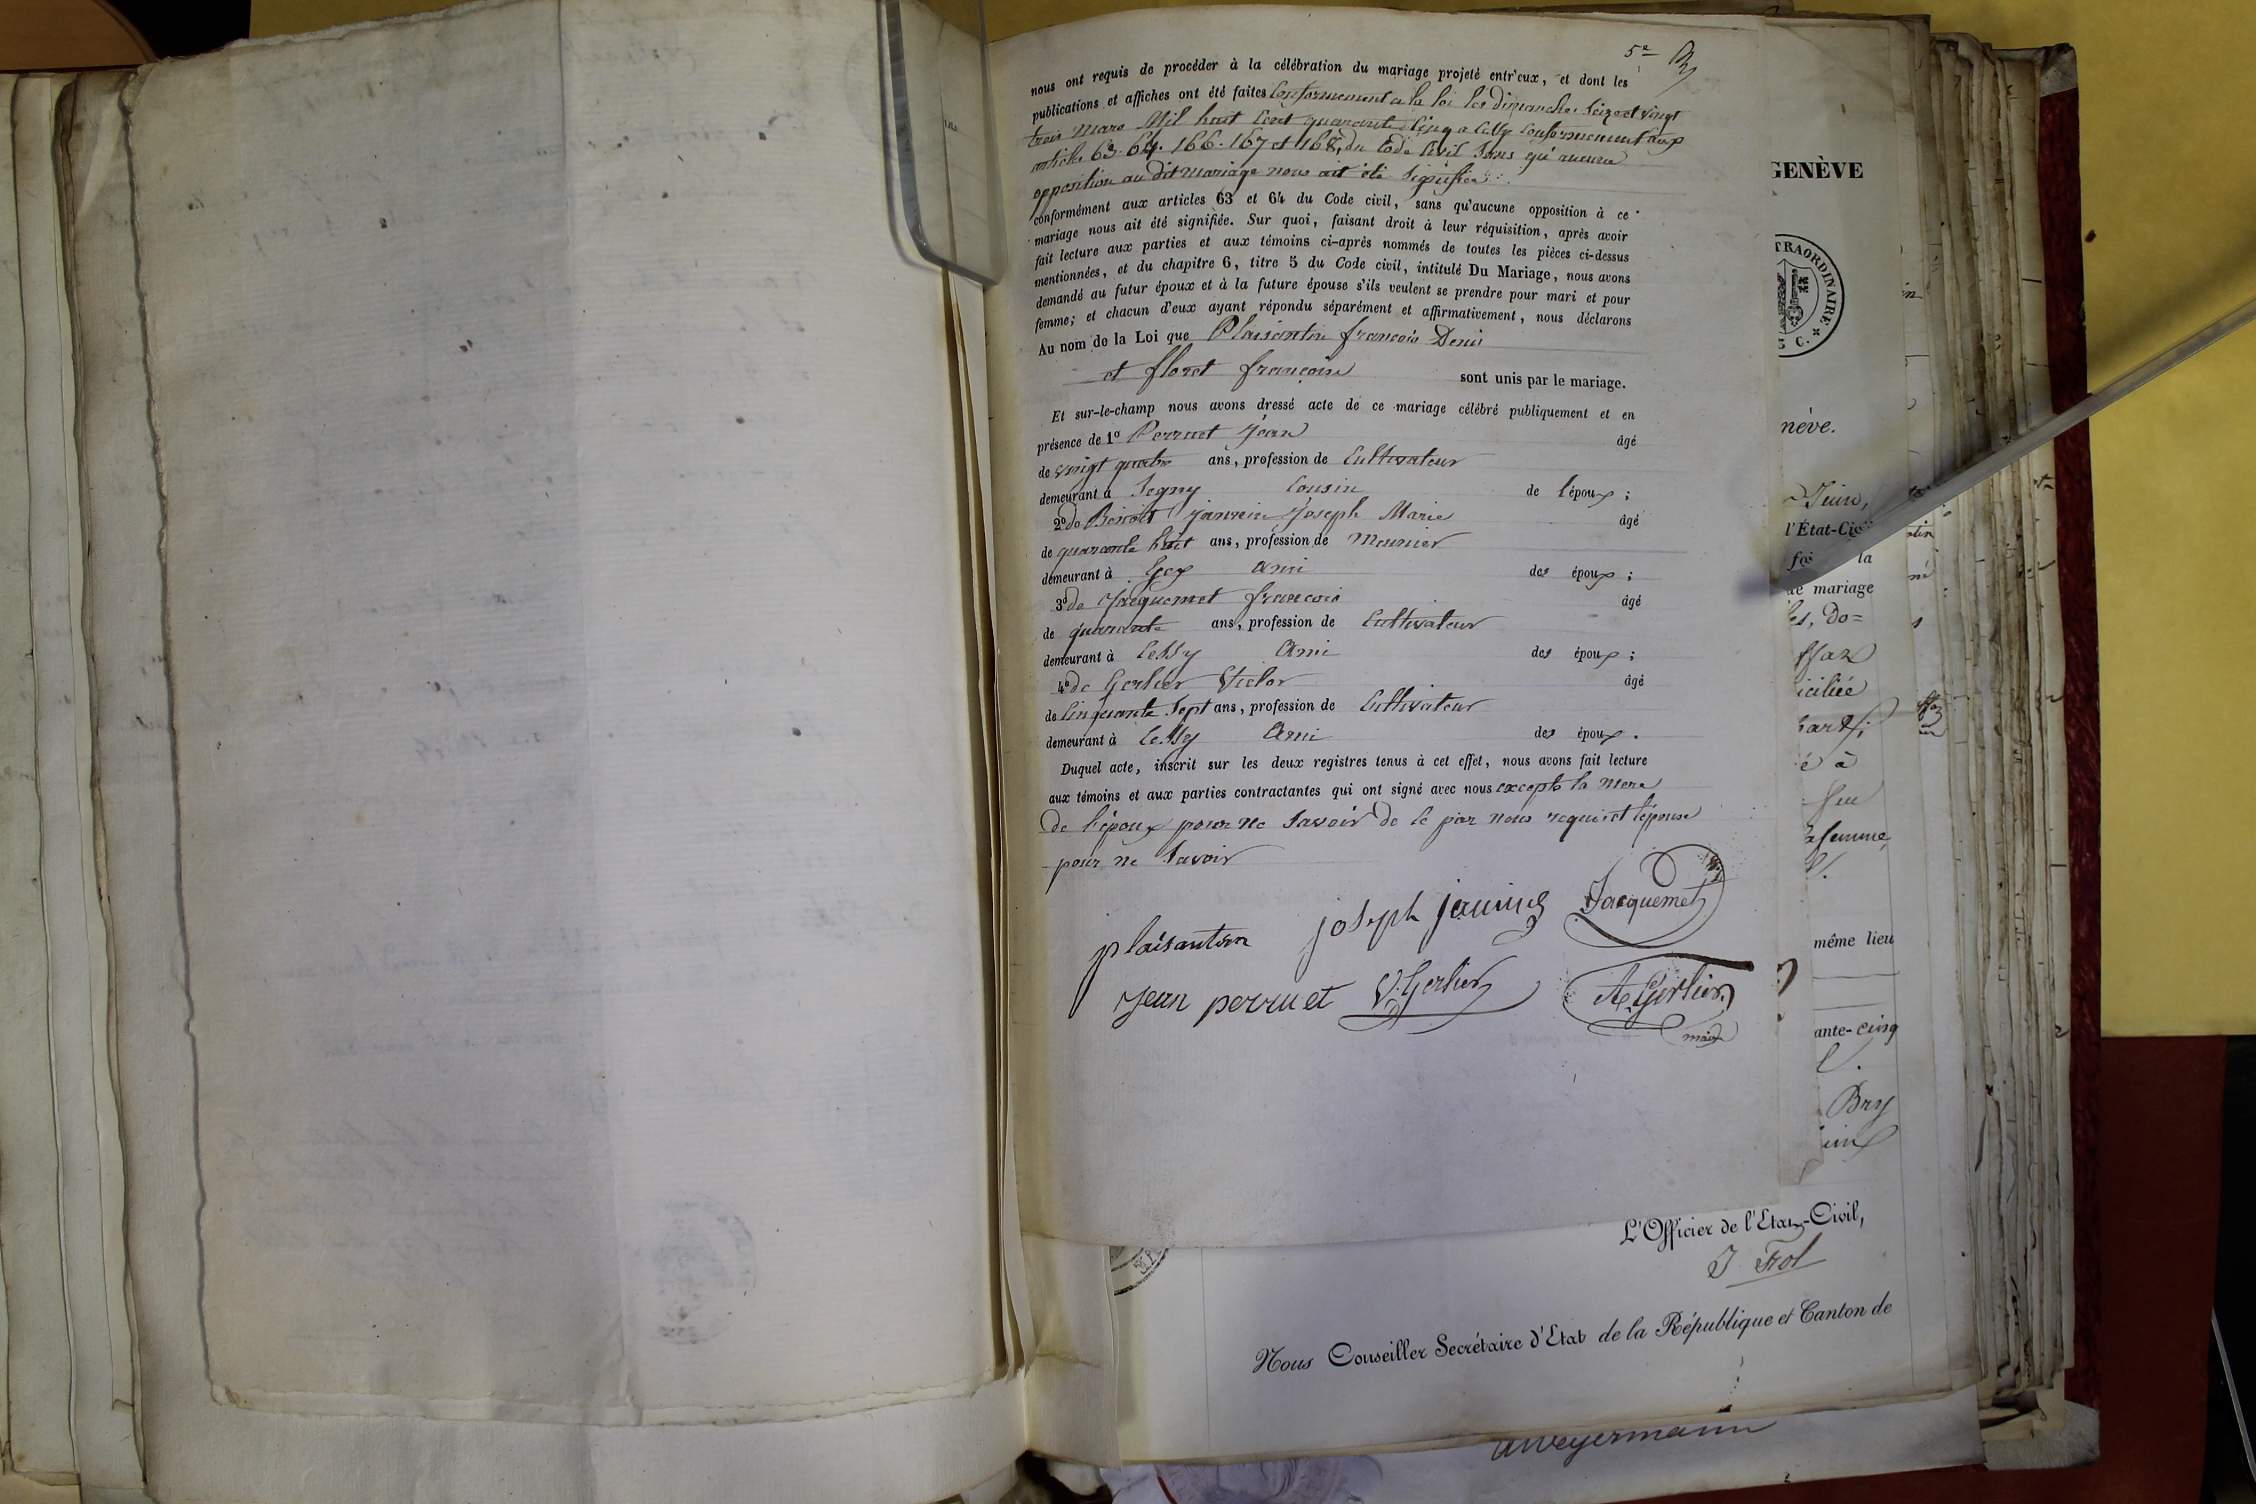 5e
nous ont requis de procéder à la célébration du mariage projeté entr'eux, et dont les
publications et affiches ont été faites Conformement a la loi les dimanches Seize et vingt
trois mars Mil huit Cent quarante Cinq a Cessy Conformement aux
articles 63. 64. 166. 167 et 168, du Code Civil Sans qu'aucune
opposition au dit mariage nous ait été Signifiée
conformément aux articles 63 et 64 du Code civil, sans qu'aucune opposition à ce
mariage nous ait été signifiée. Sur quoi, faisant droit à leur réquisition, après avoir
fait lecture aux parties et aux témoins ci-après nommés de toutes les pièces ci-dessus
mentionnées, et du chapitre 6, titre 5 du Code civil, intitulé Du Mariage, nous avons
demandé au futur époux et à la future épouse s'ils veulent se prendre pour mari et pour
femme; et chacun d'eux ayant répondu séparément et affirmativement, nous déclarons
Au nom de la Loi que Plaisantin françois Denis
et floret françoise sont unis par le mariage.
Et sur-le-champ nous avons dressé acte de ce mariage célébré publiquement et en
présence de 1o Perruet Jean âgé
de vingt quatre ans, profession de Cultivateur
demeurant à Segny Cousin de l'époux ;
2o de Benoit Jannin Joseph Marie âgé
de quarante huit ans, profession de Meunier
demeurant à Gex Ami des époux ;
3o de Jacquemet françois âgé
de quarante ans, profession de Cultivateur
demeurant à Cessy Ami des époux ;
4o de Gerlier Victor âgé
de Cinquante Sept ans, profession de Cultivateur
demeurant à Cessy Ami des époux .
Duquel acte, inscrit sur les deux registres tenus à cet effet, nous avons fait lecture
aux témoins et aux parties contractantes qui ont signé avec nous excepté la Mere
de l'époux pour ne Savoir de ce par nous requis et l'épouse
pour ne Savoir
plaisantin joseph jannin Jacquemet
Jean perruet V. Gerlier A. Gerlier
maire
GENÈVE
TRAORDINAIRE
5 C.
nève.
Juin,
l'État-Civ
la
de mariage
les, Do=
ssaz
iciliée
é à
feu
sa femme,
même lieu
ante-cinq
Bry
L'Officier de l'Etat-Civil,
J Frol
Nous Conseiller Secrétaire d'Etat de la République et Canton de
Weyermann